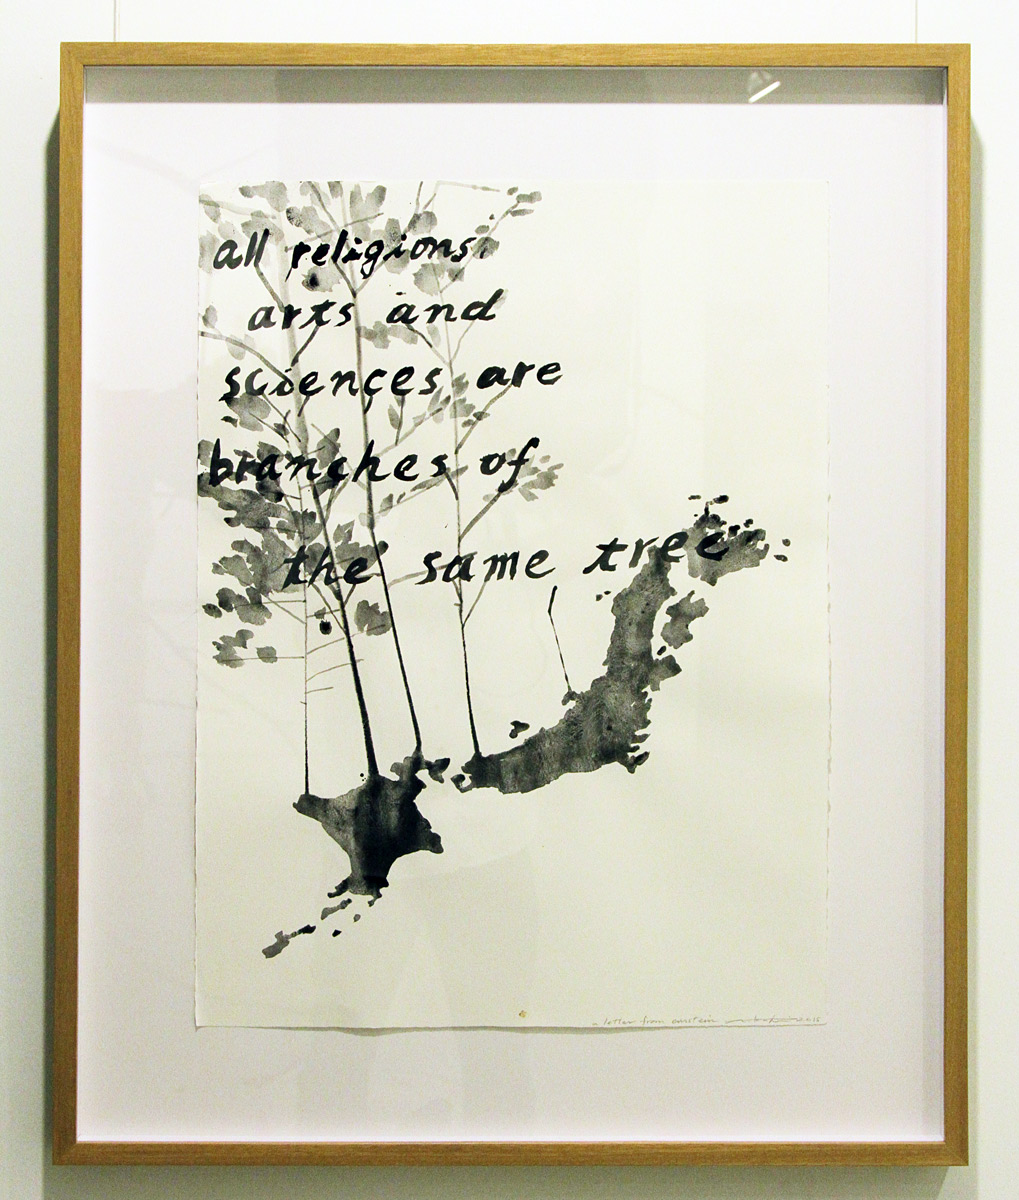 all religions,
arts and
sciences are
branches of
the same tree
a letter from einstein 2015